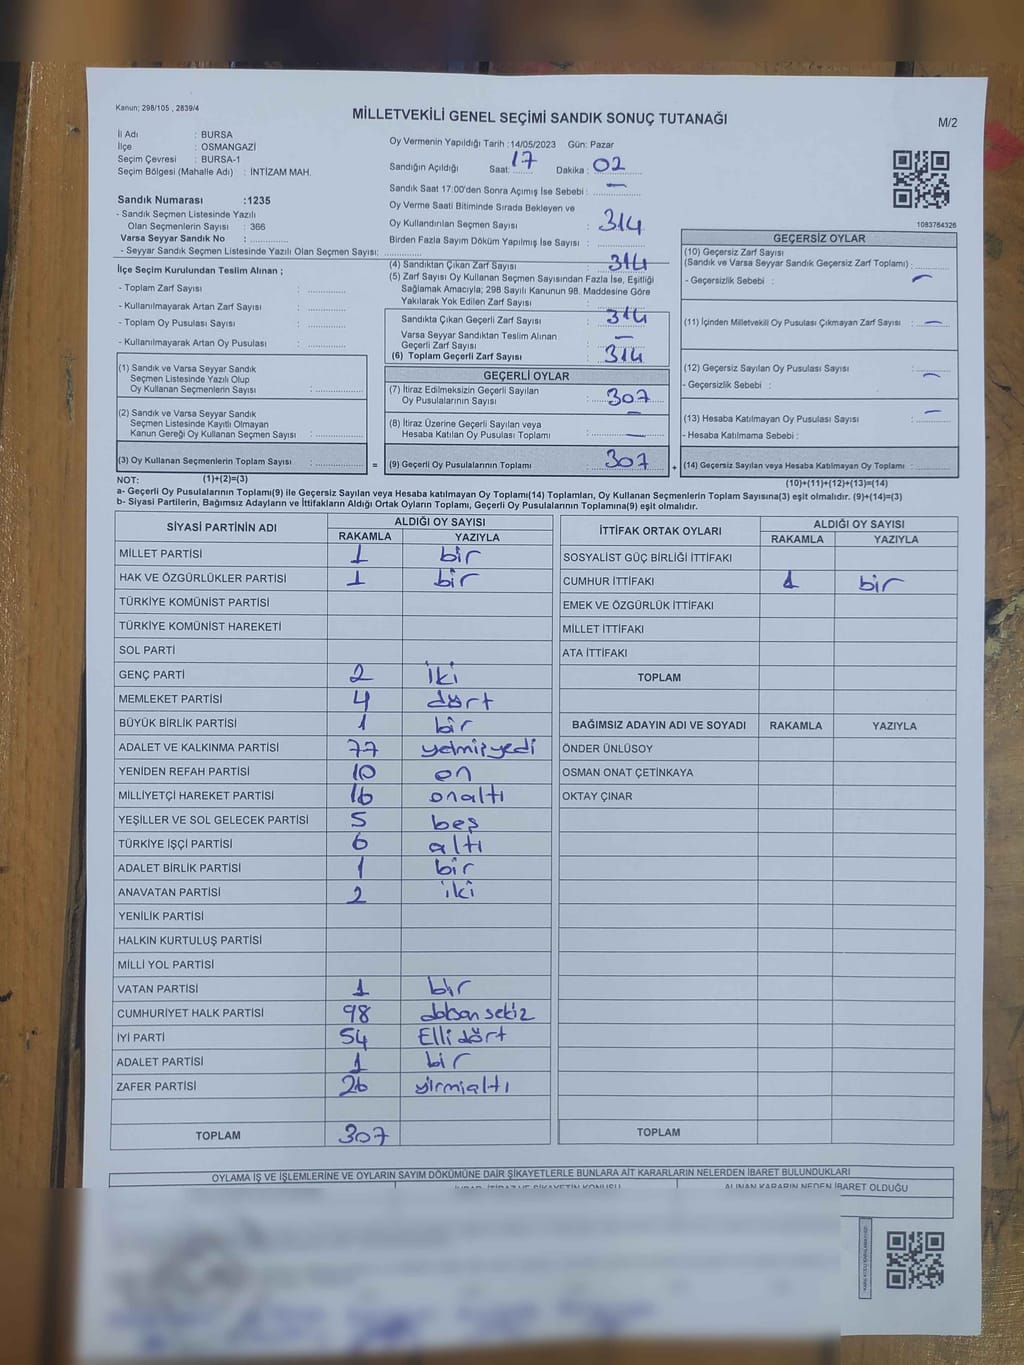 Kanun; 298/105 , 2839/4
MİLLETVEKİLİ GENEL SEÇİMİ SANDIK SONUÇ TUTANAĞI
M/2
İl Adı : BURSA
İlçe : OSMANGAZİ
Seçim Çevresi : BURSA-1
Seçim Bölgesi (Mahalle Adı) : İNTİZAM MAH.
Sandık Numarası :1235
- Sandık Seçmen Listesinde Yazılı
Olan Seçmenlerin Sayısı : 366
Varsa Seyyar Sandık No : ............
- Seyyar Sandık Seçmen Listesinde Yazılı Olan Seçmen Sayısı: ............
Oy Vermenin Yapıldığı Tarih :14/05/2023 Gün: Pazar
Sandığın Açıldığı Saat: 17 Dakika : 02
Sandık Saat 17:00'den Sonra Açımış İse Sebebi : —
Oy Verme Saati Bitiminde Sırada Bekleyen ve
Oy Kullandırılan Seçmen Sayısı : 314
Birden Fazla Sayım Döküm Yapılmış İse Sayısı : ............
1083764326
İlçe Seçim Kurulundan Teslim Alınan ;
- Toplam Zarf Sayısı : ............
- Kullanılmayarak Artan Zarf Sayısı : ............
- Toplam Oy Pusulası Sayısı : ............
- Kullanılmayarak Artan Oy Pusulası : ............
(1) Sandık ve Varsa Seyyar Sandık
Seçmen Listesinde Yazılı Olup
Oy Kullanan Seçmenlerin Sayısı : ............
(2) Sandık ve Varsa Seyyar Sandık
Seçmen Listesinde Kayıtlı Olmayan
Kanun Gereği Oy Kullanan Seçmen Sayısı : ............
(3) Oy Kullanan Seçmenlerin Toplam Sayısı : ............
(4) Sandıktan Çıkan Zarf Sayısı : 314
(5) Zarf Sayısı Oy Kullanan Seçmen Sayısından Fazla İse, Eşitliği
Sağlamak Amacıyla; 298 Sayılı Kanunun 98. Maddesine Göre
Yakılarak Yok Edilen Zarf Sayısı : ............
Sandıkta Çıkan Geçerli Zarf Sayısı : 314
Varsa Seyyar Sandıktan Teslim Alınan
Geçerli Zarf Sayısı : —
(6) Toplam Geçerli Zarf Sayısı : 314
GEÇERLİ OYLAR
(7) İtiraz Edilmeksizin Geçerli Sayılan
Oy Pusulalarının Sayısı : 307
(8) İtiraz Üzerine Geçerli Sayılan veya
Hesaba Katılan Oy Pusulası Toplamı : —
= (9) Geçerli Oy Pusulalarının Toplamı : 307
GEÇERSİZ OYLAR
(10) Geçersiz Zarf Sayısı
(Sandık ve Varsa Seyyar Sandık Geçersiz Zarf Toplamı) : ............
- Geçersizlik Sebebi : —
(11) İçinden Milletvekili Oy Pusulası Çıkmayan Zarf Sayısı : —
(12) Geçersiz Sayılan Oy Pusulası Sayısı : —
- Geçersizlik Sebebi :
(13) Hesaba Katılmayan Oy Pusulası Sayısı : —
- Hesaba Katılmama Sebebi :
+ (14) Geçersiz Sayılan veya Hesaba Katılmayan Oy Toplamı : ............
NOT: (1)+(2)=(3)
(10)+(11)+(12)+(13)=(14)
a- Geçerli Oy Pusulalarının Toplamı(9) ile Geçersiz Sayılan veya Hesaba katılmayan Oy Toplamı(14) Toplamları, Oy Kullanan Seçmenlerin Toplam Sayısına(3) eşit olmalıdır. (9)+(14)=(3)
b- Siyasi Partilerin, Bağımsız Adayların ve İttifakların Aldığı Ortak Oyların Toplamı, Geçerli Oy Pusulalarının Toplamına(9) eşit olmalıdır.
SİYASİ PARTİNİN ADI ALDIĞI OY SAYISI
RAKAMLA YAZIYLA
MİLLET PARTİSİ 1 bir
HAK VE ÖZGÜRLÜKLER PARTİSİ 1 bir
TÜRKİYE KOMÜNİST PARTİSİ
TÜRKİYE KOMÜNİST HAREKETİ
SOL PARTİ
GENÇ PARTİ 2 iki
MEMLEKET PARTİSİ 4 dört
BÜYÜK BİRLİK PARTİSİ 1 bir
ADALET VE KALKINMA PARTİSİ 77 yetmişyedi
YENİDEN REFAH PARTİSİ 10 on
MİLLİYETÇİ HAREKET PARTİSİ 16 onaltı
YEŞİLLER VE SOL GELECEK PARTİSİ 5 beş
TÜRKİYE İŞÇİ PARTİSİ 6 altı
ADALET BİRLİK PARTİSİ 1 bir
ANAVATAN PARTİSİ 2 iki
YENİLİK PARTİSİ
HALKIN KURTULUŞ PARTİSİ
MİLLİ YOL PARTİSİ
VATAN PARTİSİ 1 bir
CUMHURİYET HALK PARTİSİ 98 doksan sekiz
İYİ PARTİ 54 Elli dört
ADALET PARTİSİ 1 bir
ZAFER PARTİSİ 26 yirmialtı
TOPLAM 307
İTTİFAK ORTAK OYLARI ALDIĞI OY SAYISI
RAKAMLA YAZIYLA
SOSYALİST GÜÇ BİRLİĞİ İTTİFAKI
CUMHUR İTTİFAKI 1 bir
EMEK VE ÖZGÜRLÜK İTTİFAKI
MİLLET İTTİFAKI
ATA İTTİFAKI
TOPLAM
BAĞIMSIZ ADAYIN ADI VE SOYADI RAKAMLA YAZIYLA
ÖNDER ÜNLÜSOY
OSMAN ONAT ÇETİNKAYA
OKTAY ÇINAR
TOPLAM
OYLAMA İŞ VE İŞLEMLERİNE VE OYLARIN SAYIM DÖKÜMÜNE DAİR ŞİKAYETLERLE BUNLARA AİT KARARLARIN NELERDEN İBARET BULUNDUKLARI
ALINAN KARARIN NEDEN İBARET OLDUĞU